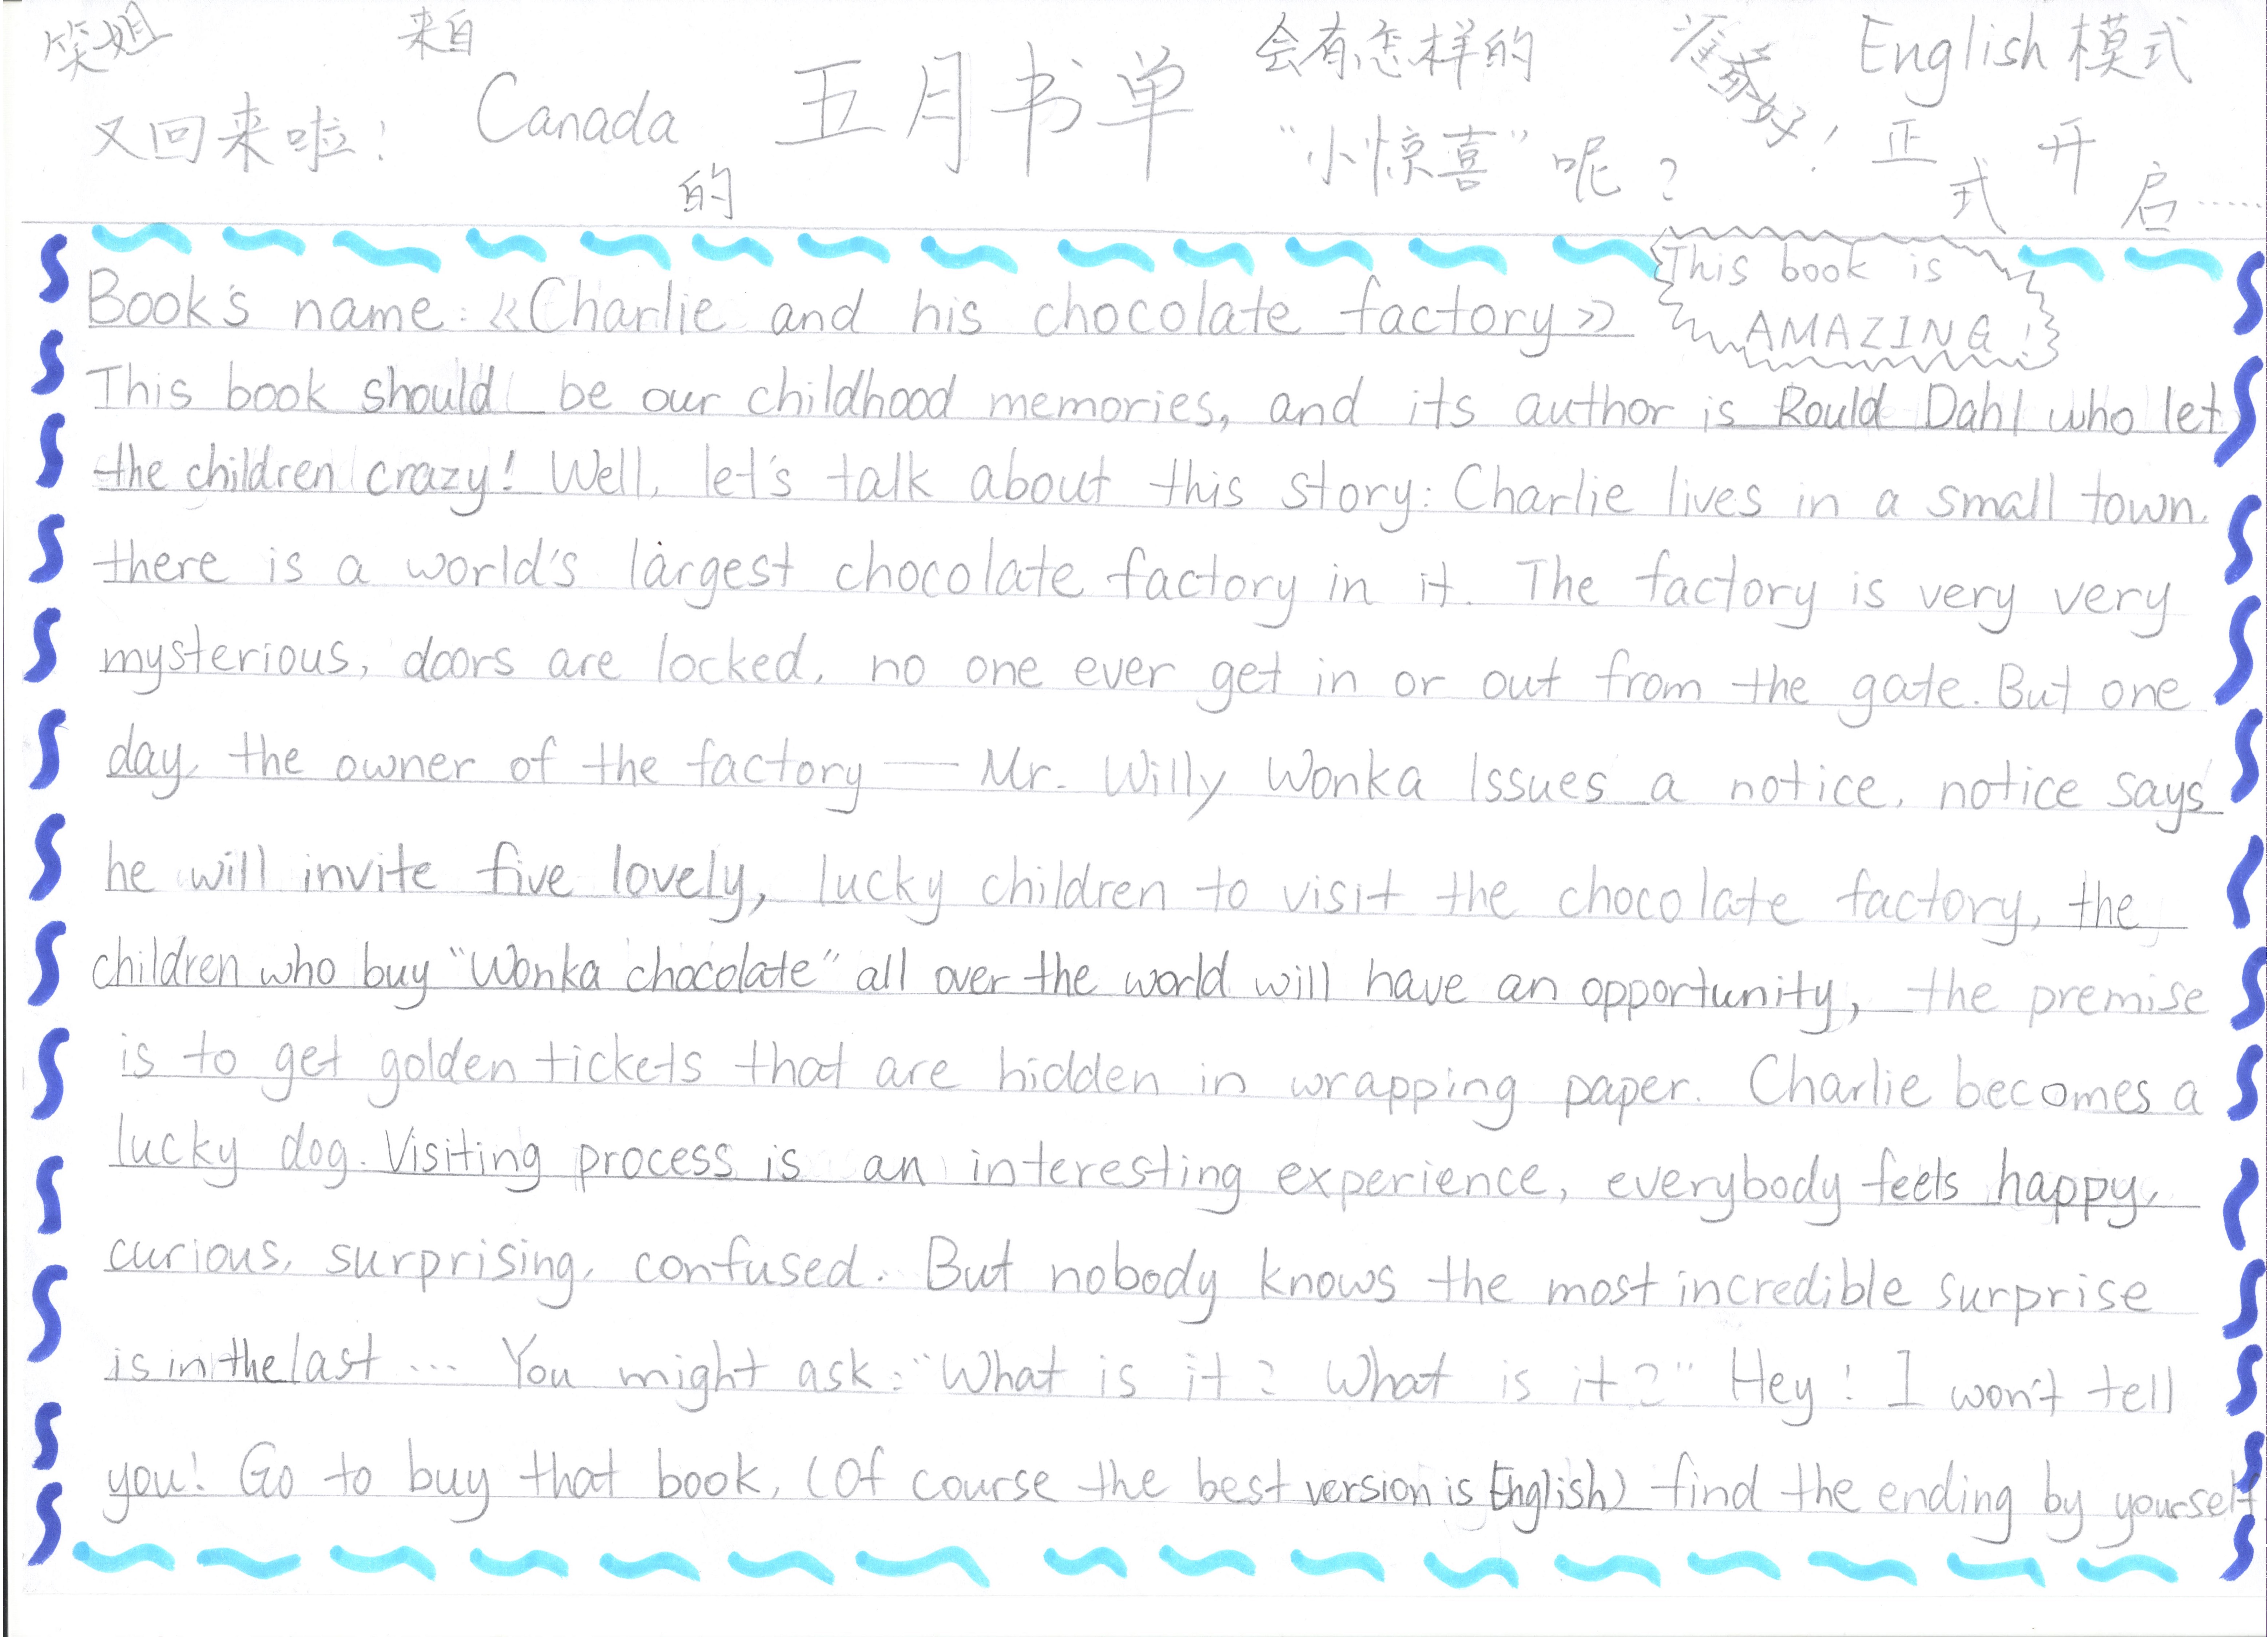 笑姐
又回来啦!
来自
Canada
的
五月书单
会有怎样的
“小惊喜”呢?
准备好!
English 模式
正式开启……
Book's name:《Charlie and his chocolate factory》
This book is
AMAZING!
This book should be our childhood memories, and its author is Rould Dahl who let
the children crazy! Well, let's talk about this story: Charlie lives in a small town.
there is a world's largest chocolate factory in it. The factory is very very
mysterious, doors are locked, no one ever get in or out from the gate. But one
day, the owner of the factory — Mr. Willy Wonka Issues a notice, notice says
he will invite five lovely, lucky children to visit the chocolate factory, the
children who buy “Wonka chocolate” all over the world will have an opportunity, the premise
is to get golden tickets that are hidden in wrapping paper. Charlie becomes a
lucky dog. Visiting process is an interesting experience, everybody feels happy,
curious, surprising, confused. But nobody knows the most incredible surprise
is in the last ... You might ask: “What is it? What is it?” Hey! I won't tell
you! Go to buy that book, (Of course the best version is English) find the ending by yourself